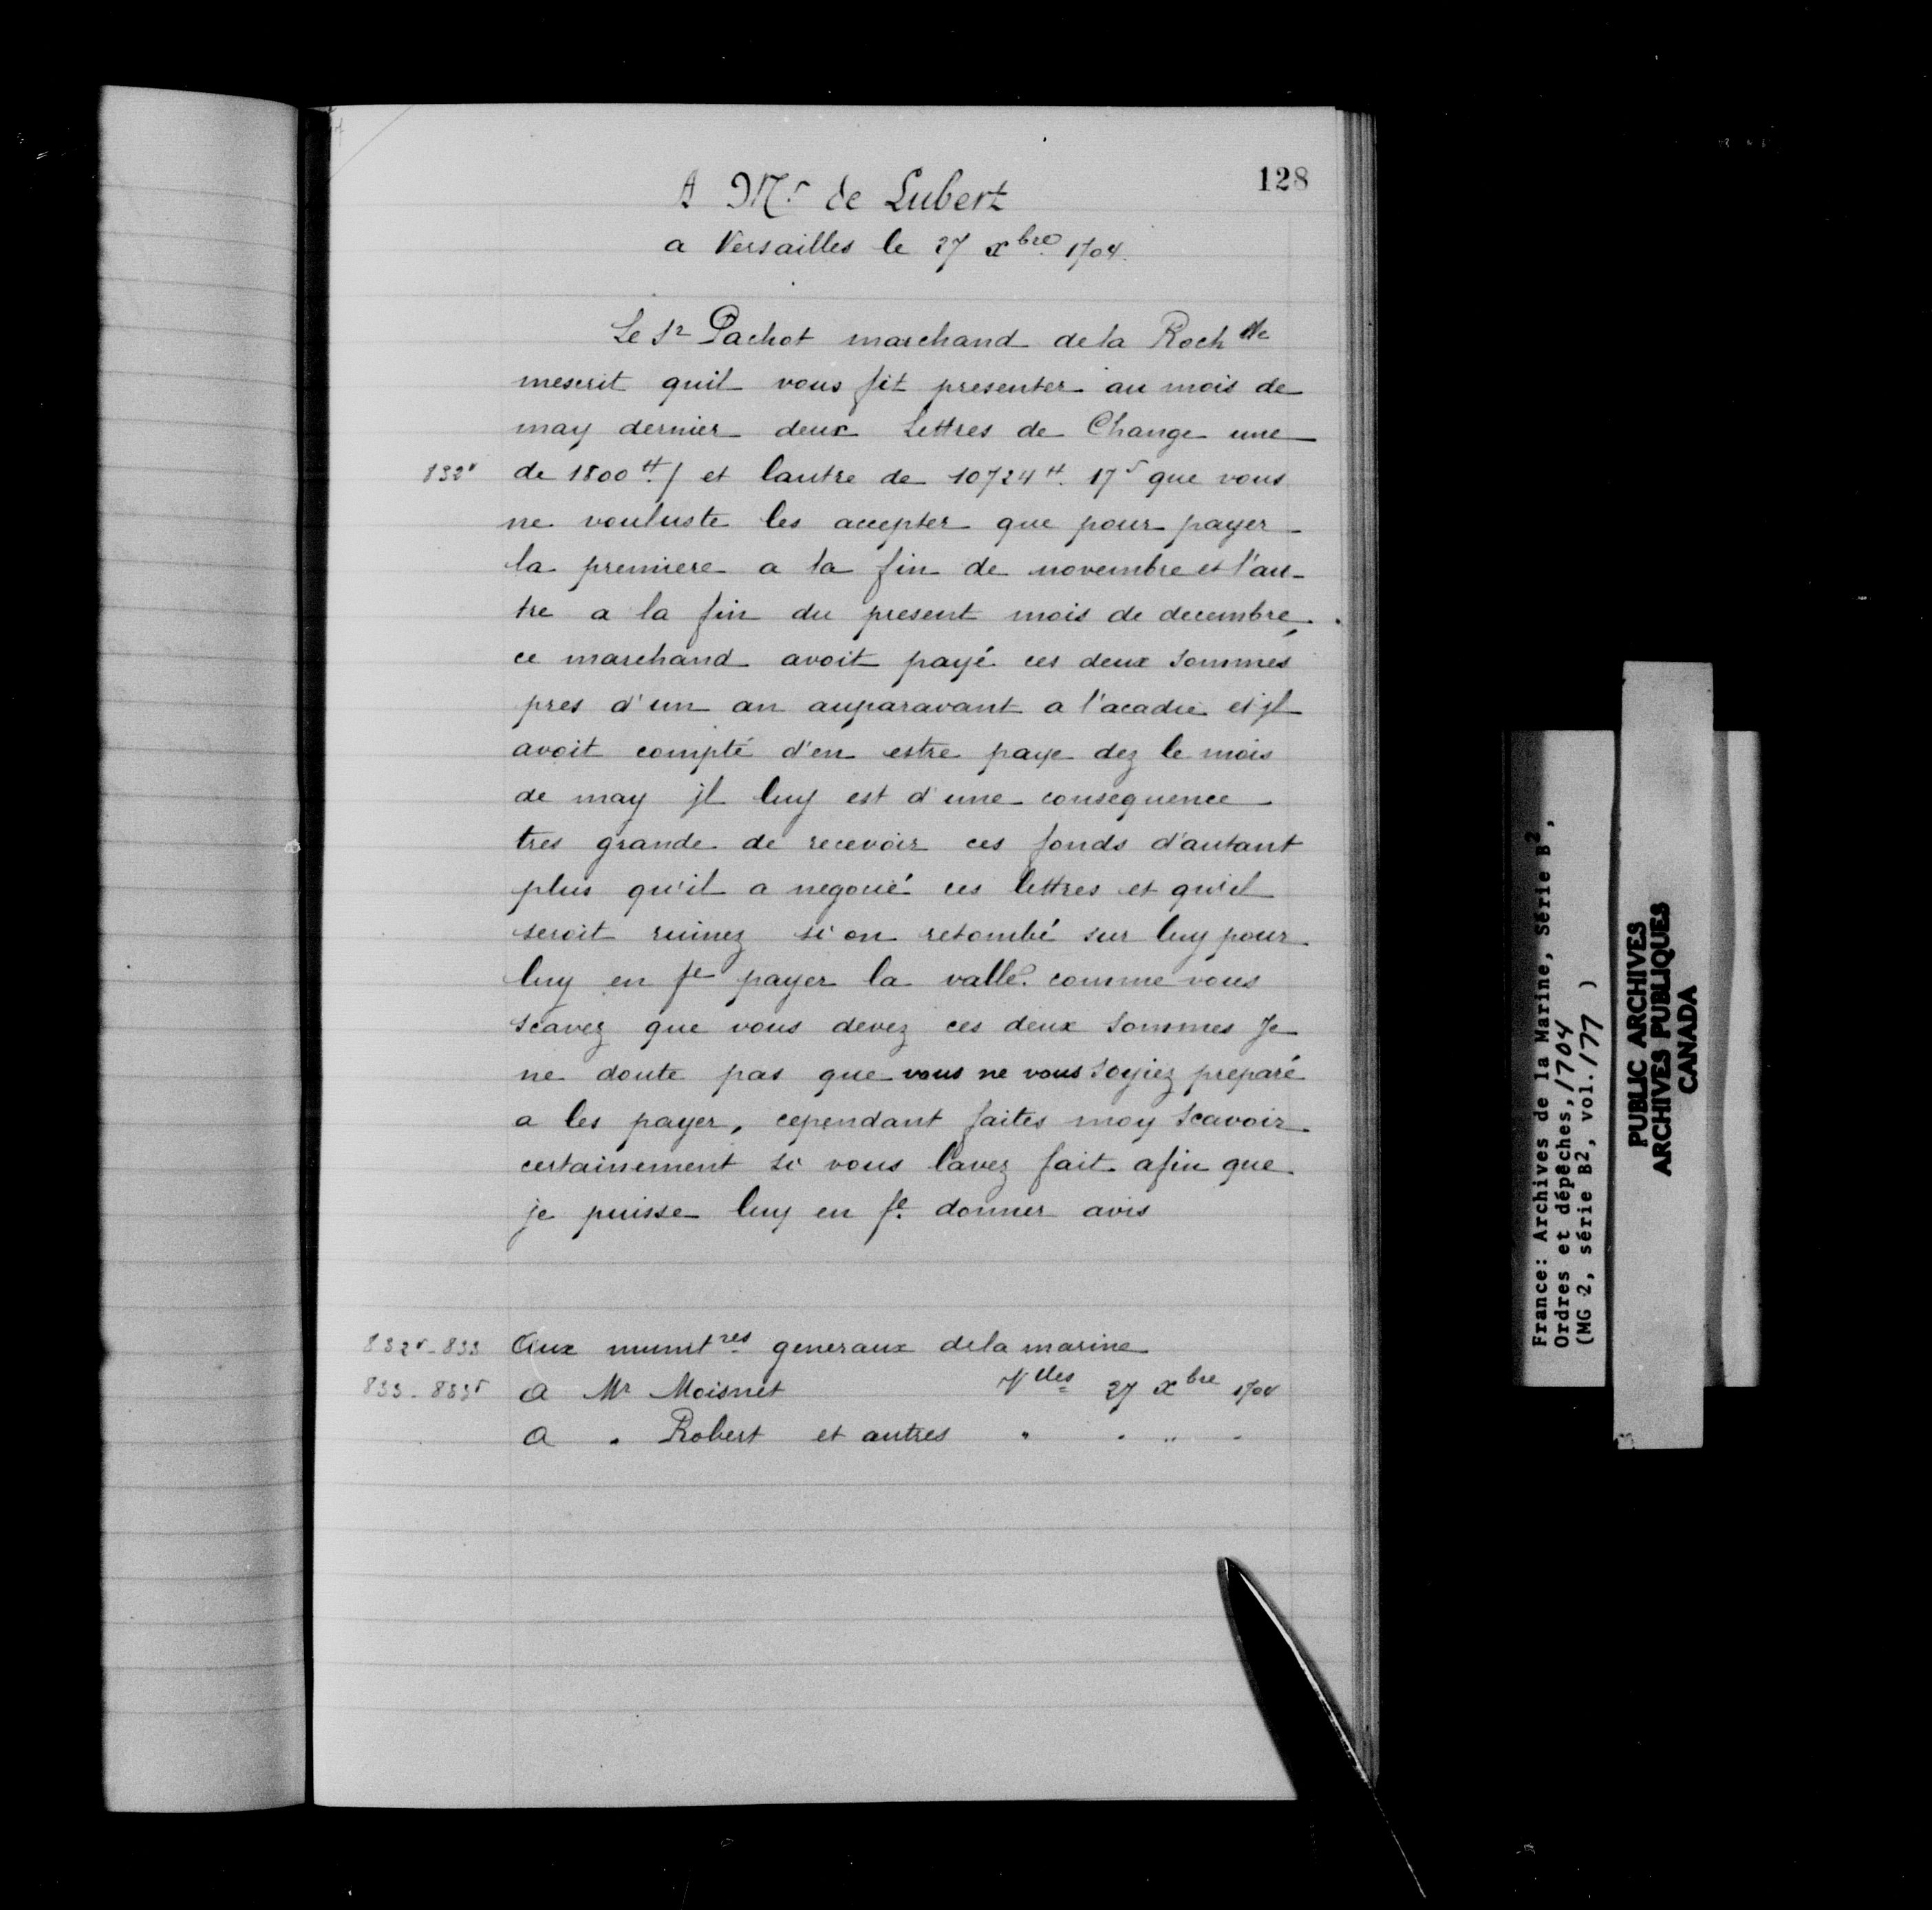 128
A Mr de Lubert
a Versailles le 27 xbre 1704.
Le Sr Pachot marchand de la Rochlle
mescrit quil vous fit presenter au mois de
may dernier deux Lettres de Change une
832v de 1800 tt / et lautre de 10724 tt. 17 s que vous
ne vouluste les accepter que pour payer
la premiere a la fin de novembre et l'au-
tre a la fin du present mois de decembre,.
ce marchand avoit payé ces deux sommes
pres d'un an auparavant a l'acadie et jl
avoit compté d'en estre paye dez le mois
de may jl luy est d'une consequence
tres grande de recevoir ces fonds d'autant
plus qu'il a negocié ces lettres et qu'il
seroit ruinez si on retombé sur luy pour
luy en fe payer la valle. comme vous
scavez que vous devez ces deux sommes Je
ne doute pas que vous ne vous soyiez preparé
a les payer, cependant faites moy scavoir
certainement si vous lavez fait afin que
je puisse luy en fe. donner avis
832v-833 Aux munitres generaux dela marine
833-833v A Mr Moisnet Vlles 27 xbre 1704
A " Robert et autres " " " "
France: Archives de la Marine, Série B2,
Ordres et dépêches, 1704
(MG 2, série B2, vol. 177 )
PUBLIC ARCHIVES
ARCHIVES PUBLIQUES
CANADA